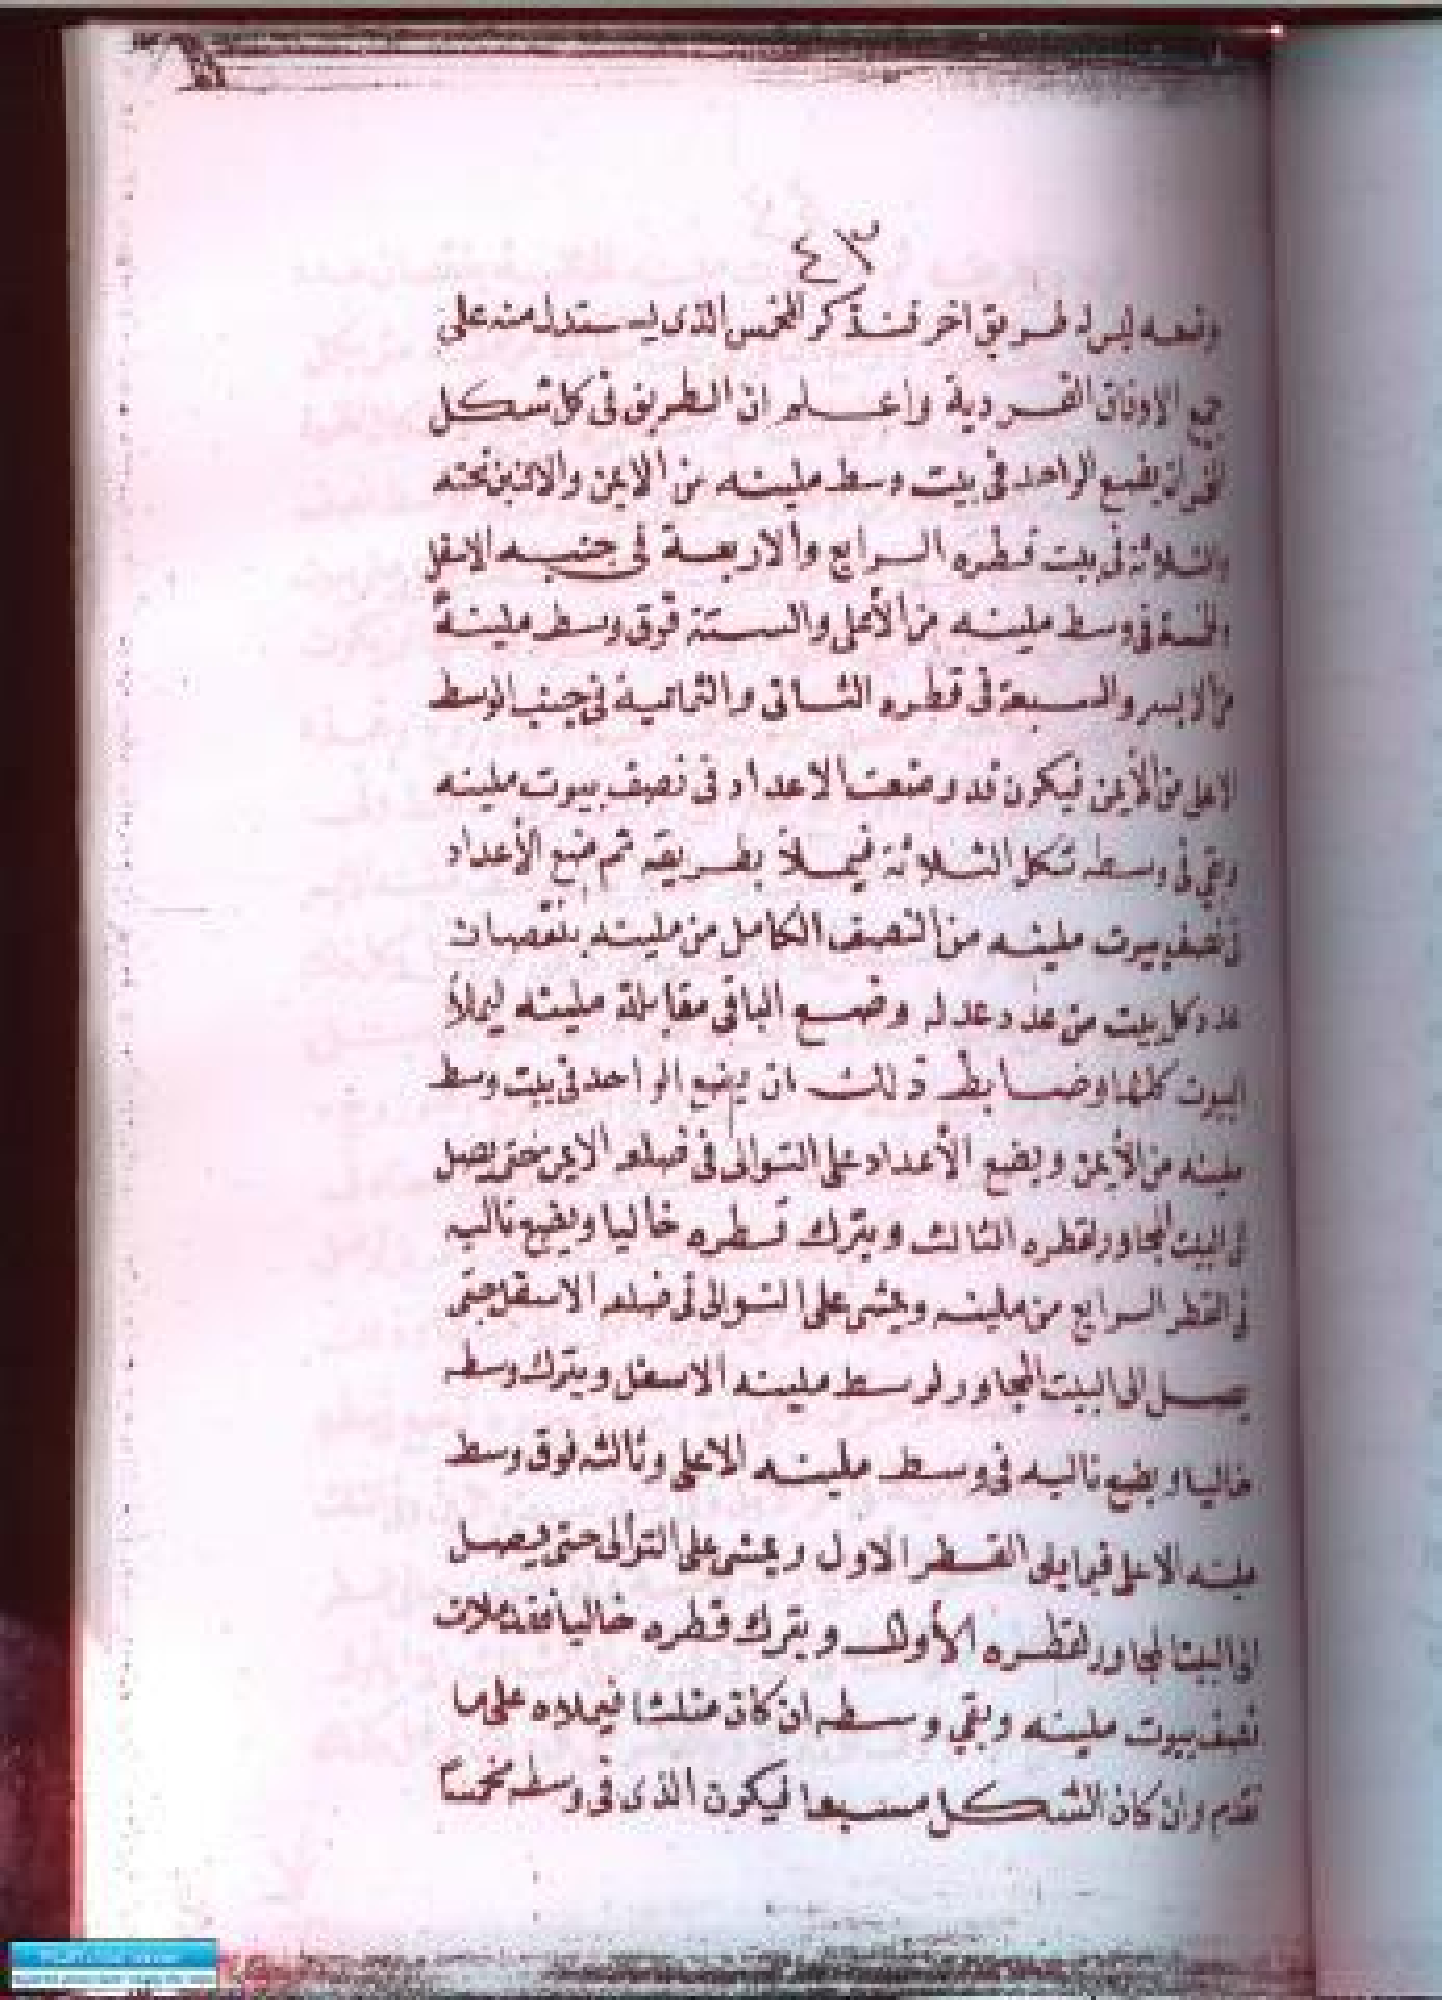 ٤٣
وضعه ليس له طريق اخر فنذكر المخمس الذى يستدل منه على
جميع الاوفاق الفردية واعلم ان الطريق فى كل شكل
ان يضع الواحد فى بيت وسط ملبنه من الايمن والاثنين تحته
والثلاثة فى بيت قطره الرابع والاربعة فى جنبه الاسفل
والخمسة فى وسط ملبنه من الأعلى والستة فوق وسط ملبنه
من الايسر والسبعة فى قطره الثانى والثمانية فى جنب الوسط
الاعلى من الأيمن فيكون قد وضعت الاعداد فى نصف بيوت ملبنه
وبقى فى وسطه شكل الثلاثة فيملأ بطريقه ثم ضع الأعداد
فى نصف بيوت ملبنه من النصف الكامل من ملبنه بنقصان
عدد كل بيت من عدد عدله وضع الباقى مقابلة ملبنه ليملأ
البيوت كلها وضابط ذلك ان يضع الواحد فى بيت وسط
ملبنه من الأيمن ويضع الأعداد على التوالى فى ضلعه الايمن حتى يصل
فى البيت المجاور لقطره الثالث ويترك قطره خاليا ويضع تاليه
فى القطر الرابع من ملبنه ويمشى على التوالى فى ضلعه الاسفل حتى
يصل الى البيت المجاور لوسط ملبنه الاسفل ويترك وسطه
خاليا ويضع تاليه فى وسط ملبنه الاعلى وثالثه فوق وسط
ملبنه الاعلى فيما يلى القطر الاول ويمشى على التوالى حتى يصل
الى البيت المجاور لقطره الأول ويترك قطره خاليا فقد ملات
نصف بيوت ملبنه وبقي وسطه ان كان مثلثا فيملاه على ما
تقدم وان كان الشكل مسبعا فيكون الذى فى وسطه مخمسا